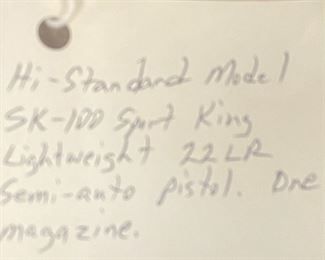 Hi-Standard Model
SK-100 Sport King
Lightweight 22LR
Semi-auto pistol. One
magazine.